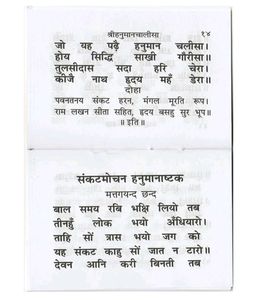 श्रीहनुमानचालीसा १४
जो यह पढ़ै हनुमान चलीसा।
होय सिद्धि साखी गौरीसा।
तुलसीदास सदा हरि चेरा।
कीजै नाथ हृदय महँ डेरा।
दोहा
पवनतनय संकट हरन, मंगल मूरति रूप।
राम लखन सीता सहित, हृदय बसहु सुर भूप॥
॥ इति ॥
संकटमोचन हनुमानाष्टक
मत्तगयन्द छन्द
बाल समय रबि भक्षि लियो तब
तीनहुँ लोक भयो अँधियारो।
ताहि सों त्रास भयो जग को
यह संकट काहु सों जात न टारो॥
देवन आनि करी बिनती तब